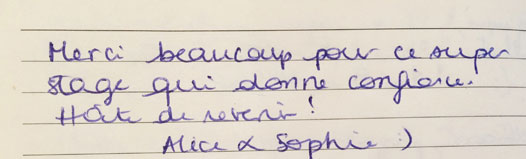 Merci beaucoup pour ce super
stage qui donne confiance.
Hâte de revenir !
Alice & Sophie :)